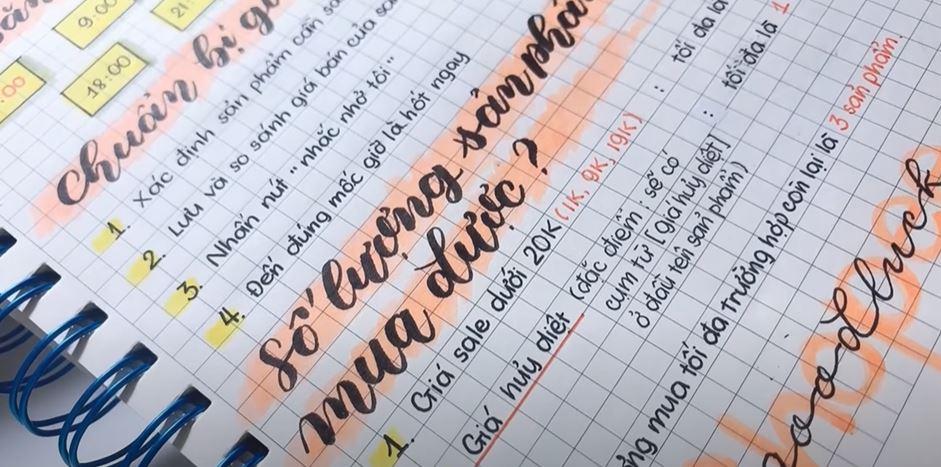 .00
9:00
21:
18:00
chuẩn bị gì
1. Xác định sản phẩm cần
2. Lưu và so sánh giá bán của
3. Nhấn nút "nhắc nhở tôi"
4. Đến đúng mốc giờ là hốt ngay
số lượng sản phẩ
mua được?
1. Giá sale dưới 20K (1K, 9K, 19K) : tối đa là
Giá hủy diệt (đặc điểm: sẽ có : tối đa là 1
cụm từ [giá hủy diệt]
ở đầu tên sản phẩm)
ng mua tối đa trường hợp còn lại là 3 sản phẩm.
good luck